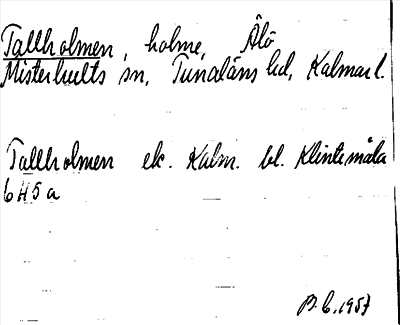 Tallholmen, holme, Älö
Misterhults sn, Tunaläns hd, Kalmar l.
Tallholmen ek. Kalm. bl. Klintemåla
6H5a
B.C. 1957